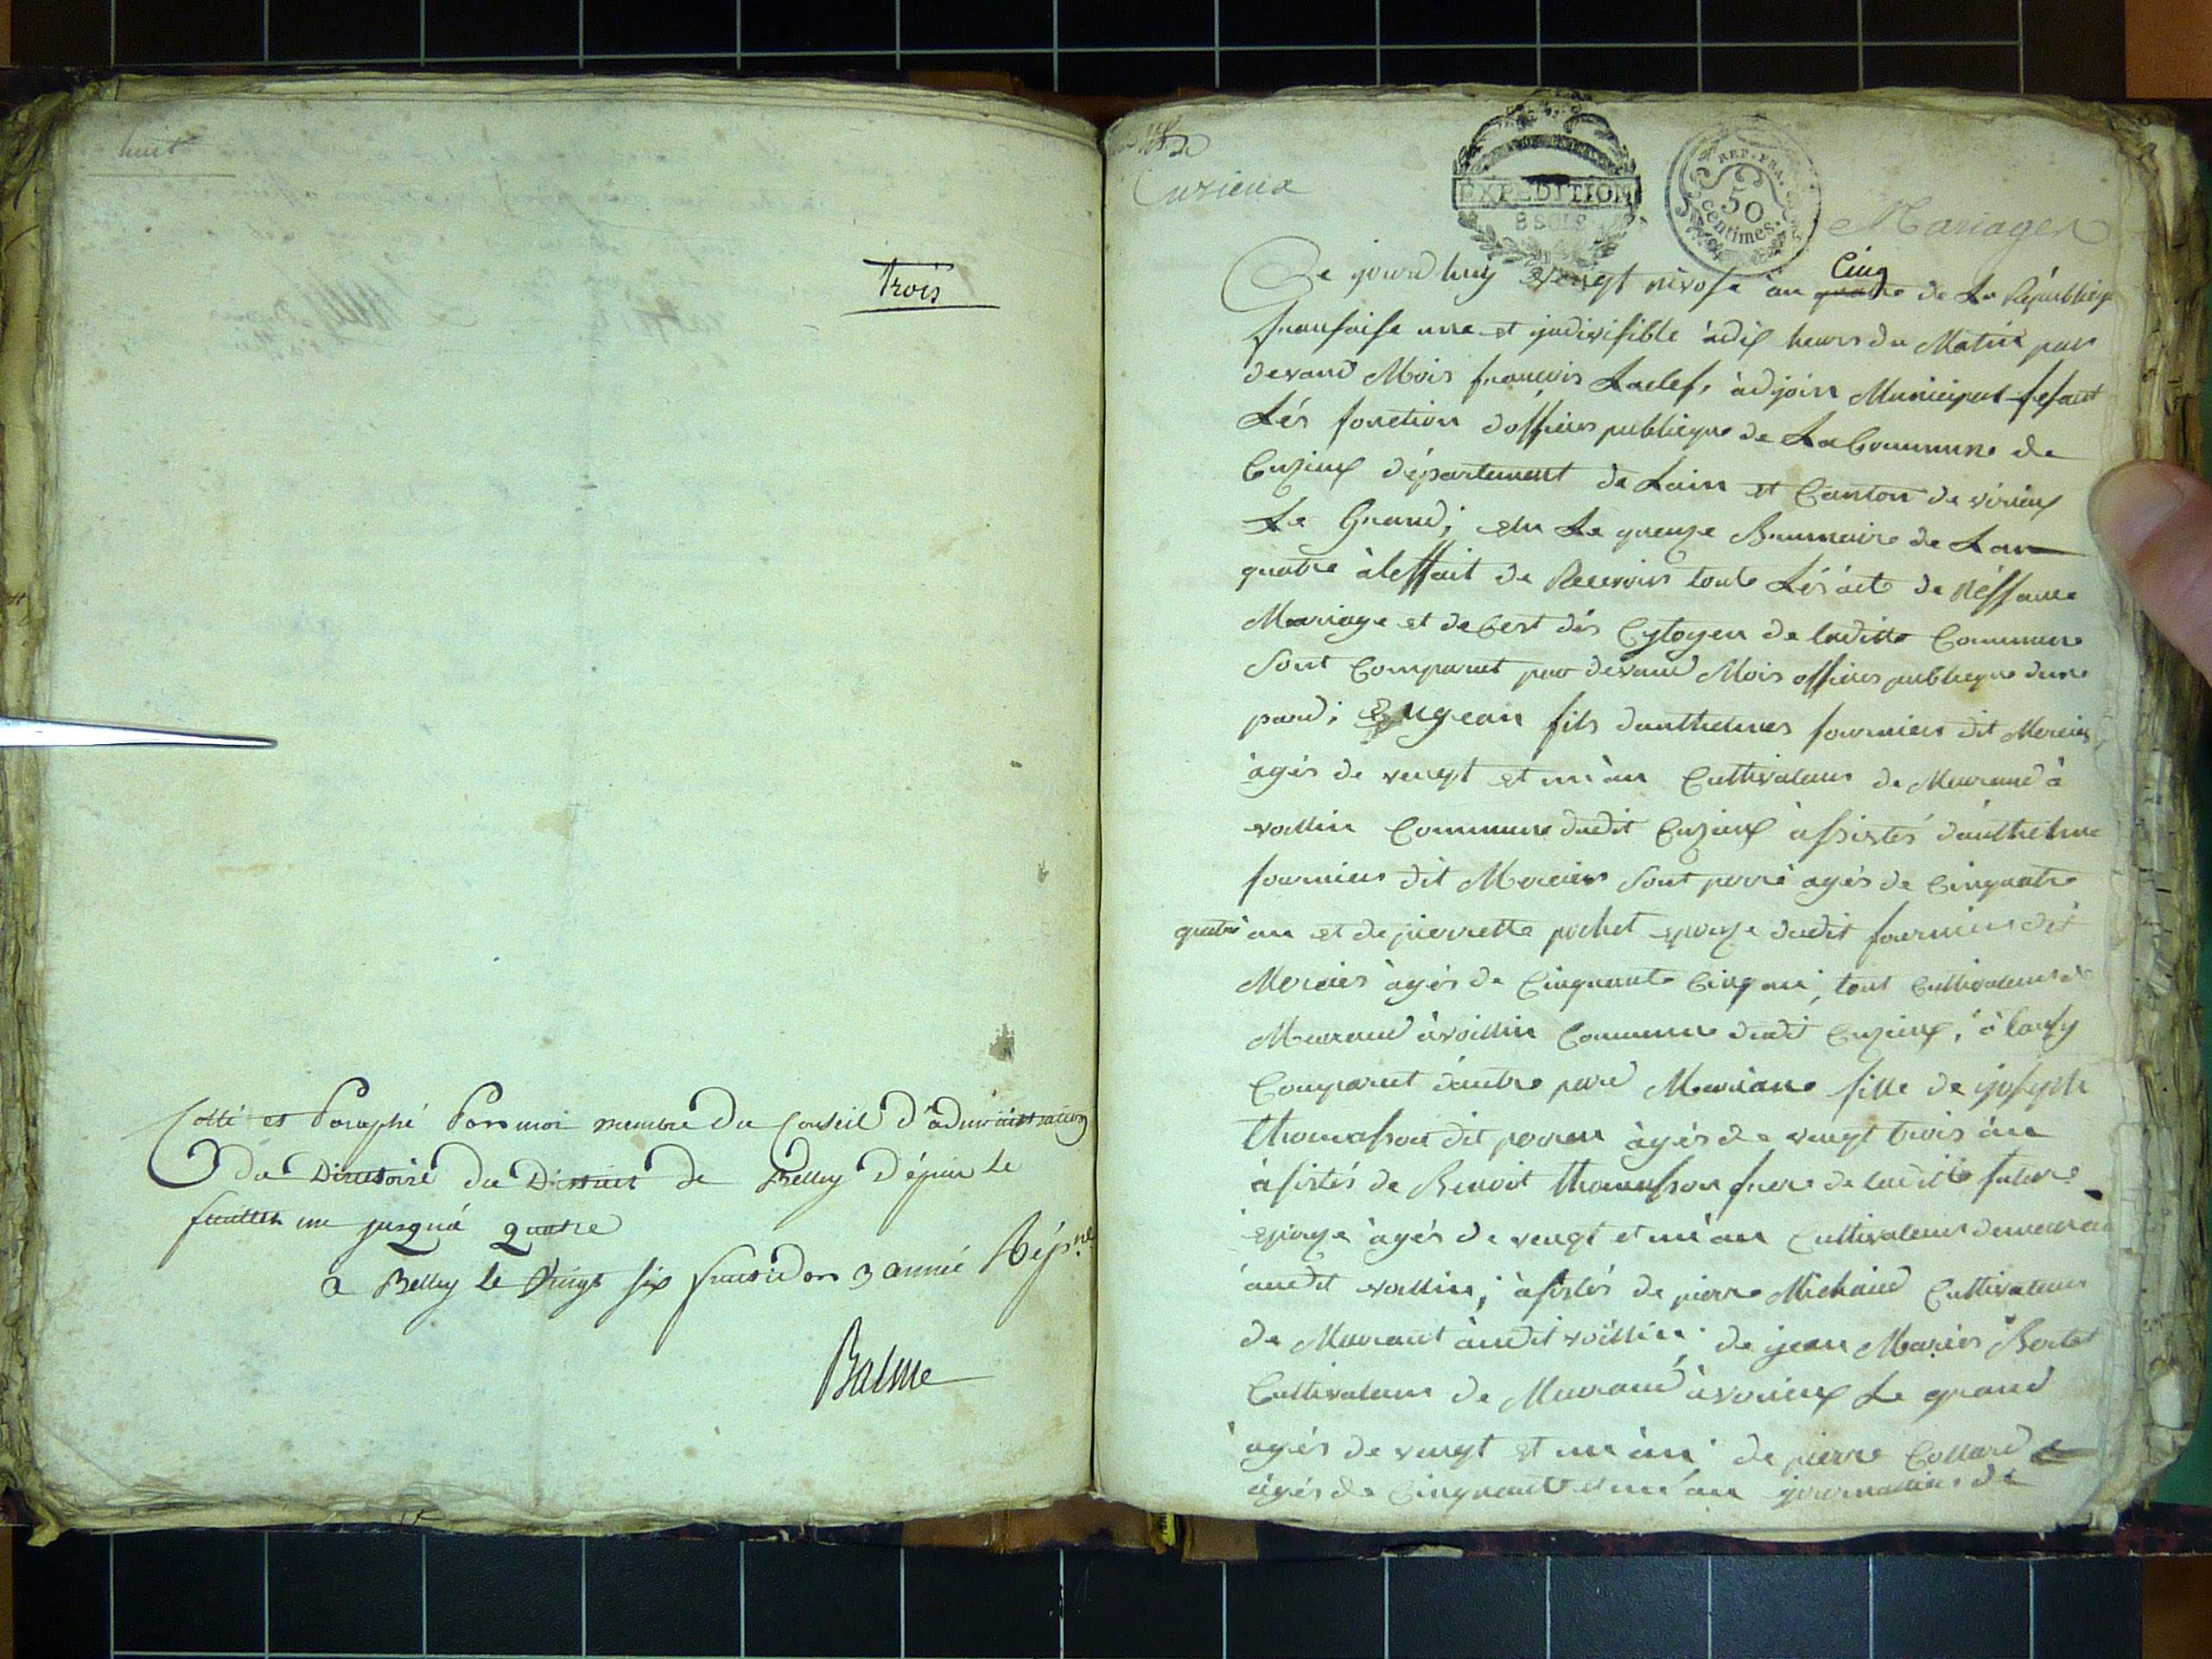 huit
trois
Cotté et Paraphé Par moi membre du Conseil d'administration
du Directoire du District de Belley Dépuis le
feuillet un jusqu'á quatre
a Belley le vingt six fructidor 3 année Rép.ne
Balme
Cuzieux
EXPEDITION
8 SOLS
REP. FRA.
50
centimes.
Mariages
Ce jourd huy vengt nivose àn quatre Cinq de La Républiq
franfaise une et jndivisible àdix heurs du Matin par
devand Mois francois Laclef, àdjoin Municipal fesant
Lés fonction dofficier publicque de La Commune de
Cuzieux département de Lain et Canton de virieux
Le Grand; elu Le quenze Brumaire de Lan
quatre àleffait de Recevoir toute Lés àcte de Néssance
Mariage et deCest dés Cytoyen de laditte Commune
Sont Comparut par devand Mois officier publicque dune
pard; Eugean fils danthelmes fournier dit Mercier
àgés de vengt et un àn Cultivateur de Meurand à
vollien Commune dudit Cuzieux àssistés danthelme
fournier dit Mercier Sont perre agés de Cinquante
quatre an et de pierrette pochet epouze dudit fournier dit
Mercier àgés de Cinquante Cinq an, tout Cultivateur de
Meurand àvollien Commune dudit Cuzieux, à Caussy
Comparut dautre pard Mariane fille de joseph
thomasson dit perren àgés de vengt trois àn
àsistés de Benoit thomasson frere de laditte future
epouze àgés de vengt et un àn Cultivateur demeurand
àudit vollien; àsistés de pierre Michaud Cultivateur
de Meurant àudit vollien; de jean Marier Bertet
Cultivateur de Meurand àvirieux Le grand
àgés de vengt et un àn; de pierre Collard
àgés de Cinquante et un àn journallier de